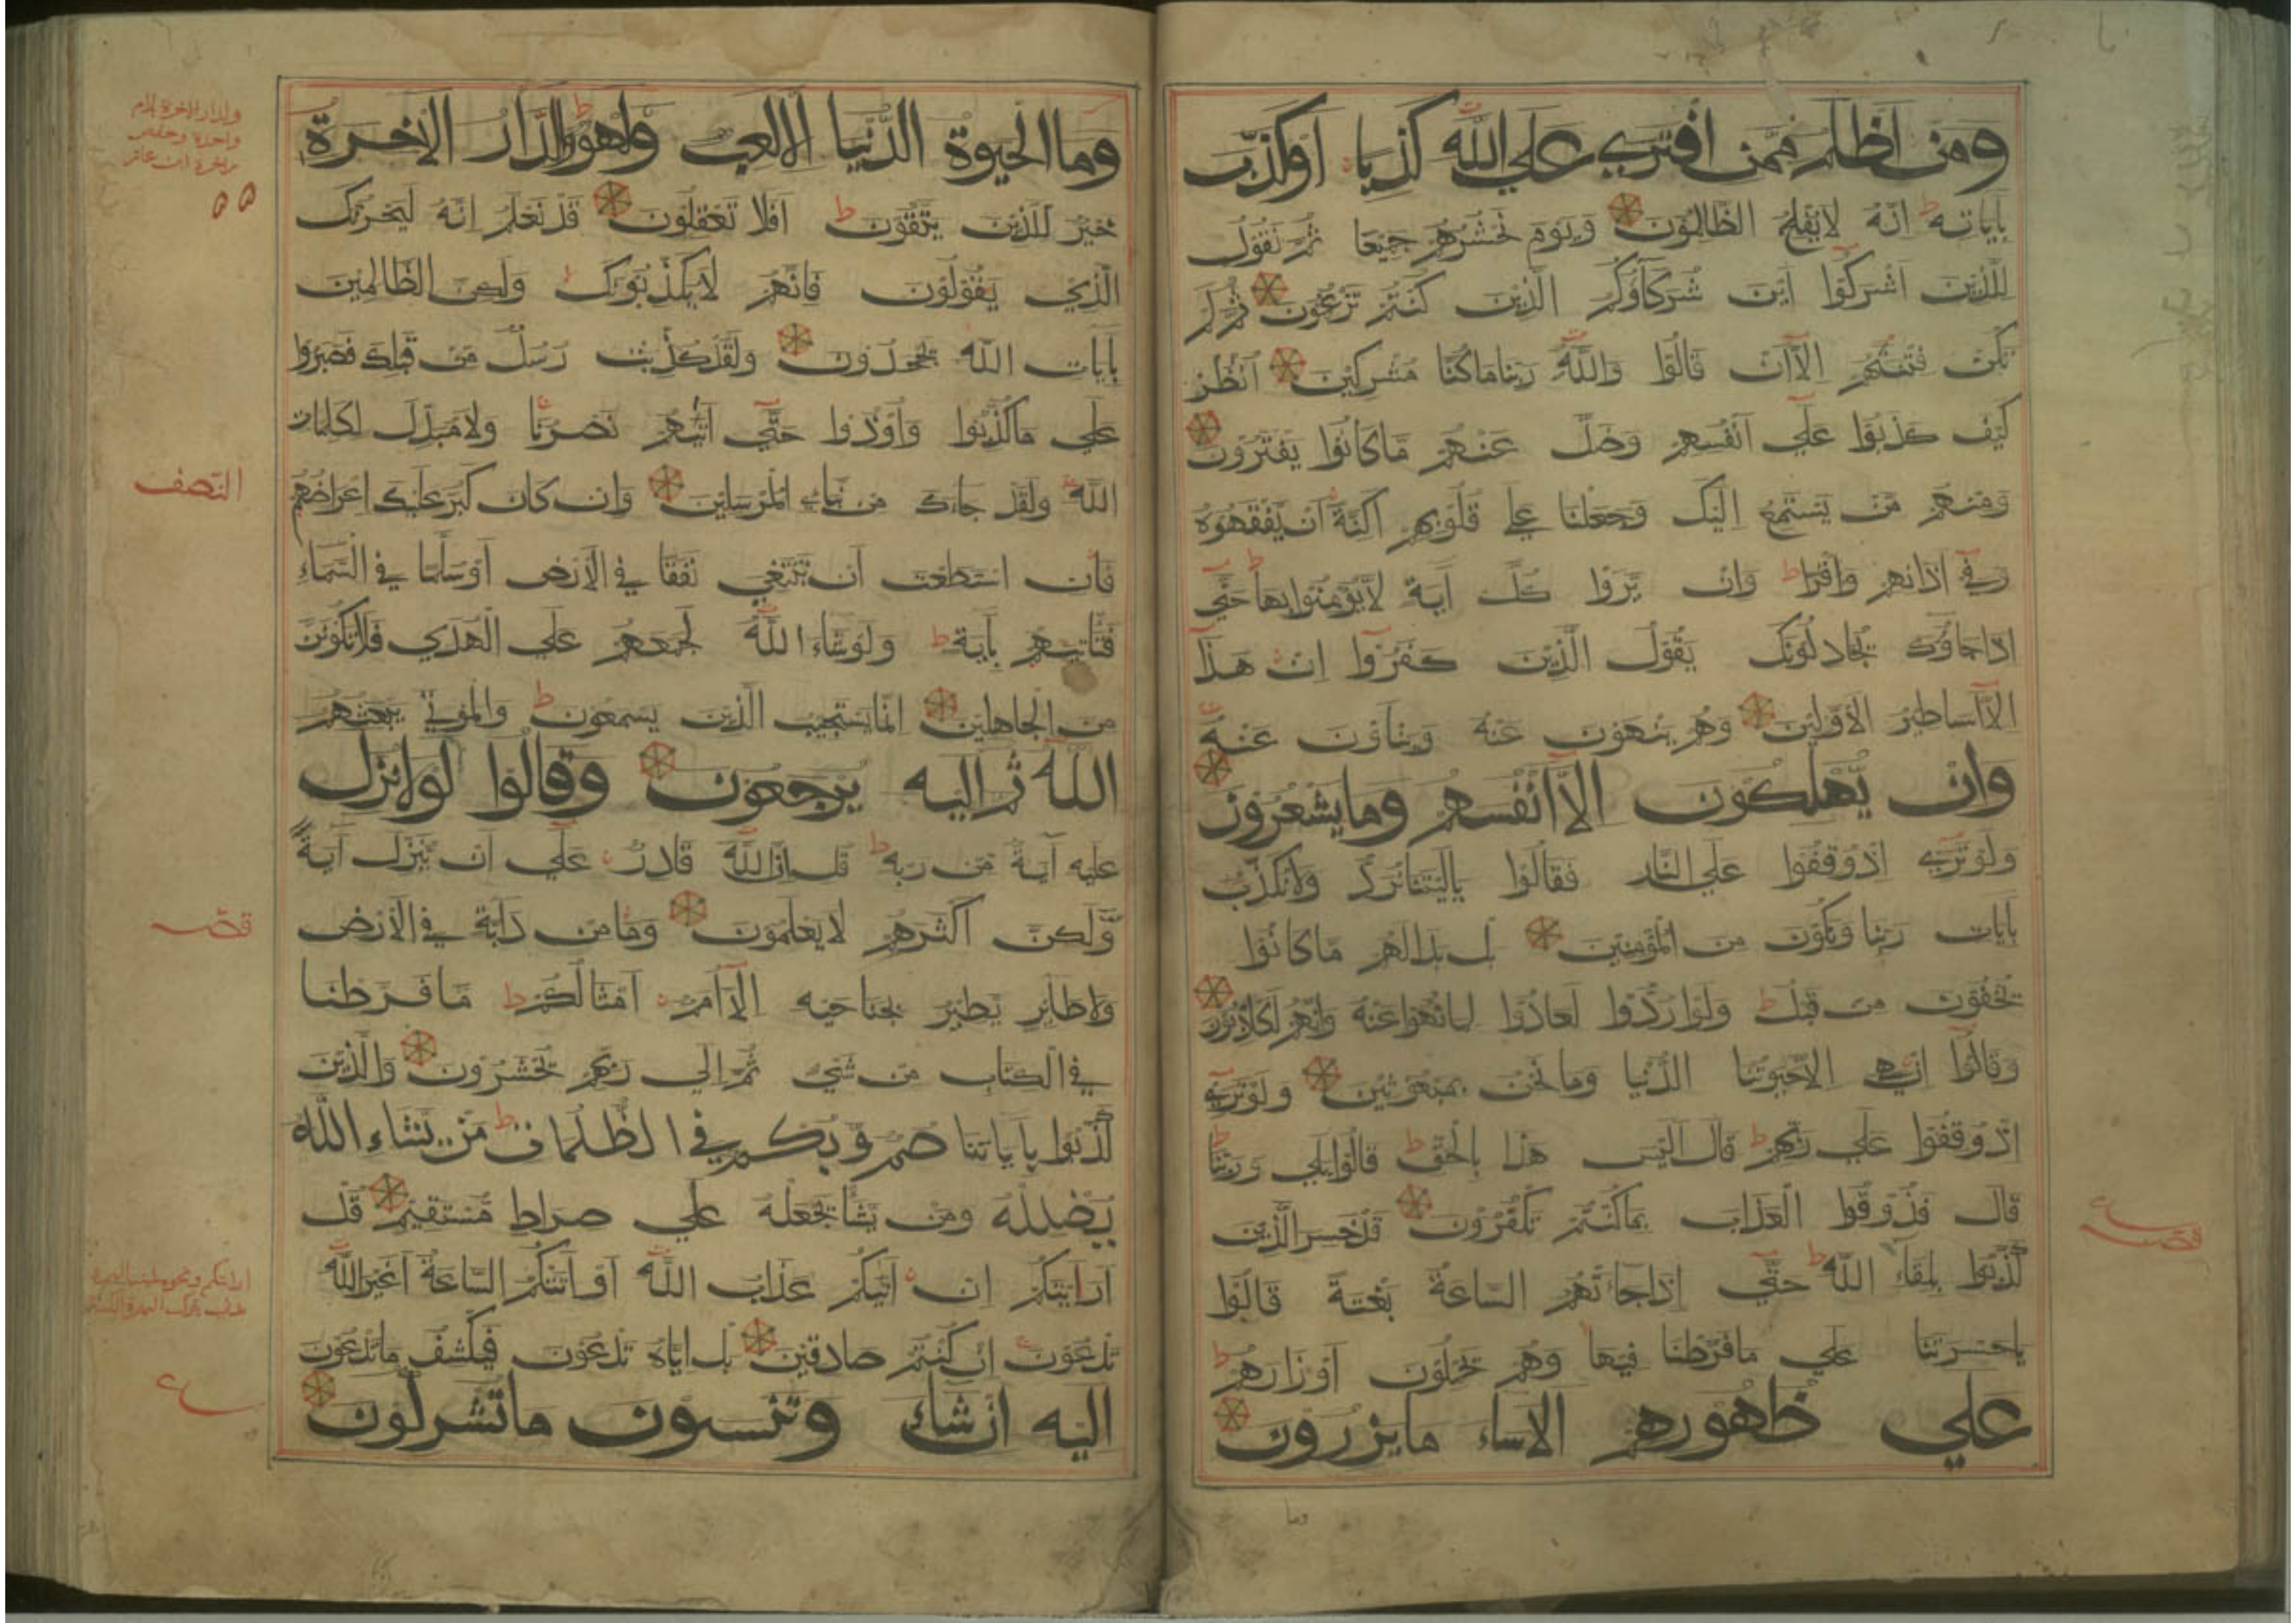 ومن اظلم ممن افتري علي الله كذبا او كذب
باياته انه لا يفلح الظالمون ويوم نحشرهم جميعا ثم نقول
للذين اشركوا اين شركاؤكم الذين كنتم تزعمون ثم لم
تكن فتنتهم الا ان قالوا والله ربنا ما كنا مشركين انظر
كيف كذبوا علي انفسهم وضل عنهم ما كانوا يفترون
ومنهم من يستمع اليك وجعلنا علي قلوبهم اكنة ان يفقهوه
وفي اذانهم وقرا وان يروا كل آية لا يؤمنوا بها حتي
اذا جاؤك يجادلونك يقول الذين كفروا ان هذا
الا اساطير الاولين وهم ينهون عنه وينأون عنه
وان يهلكون الا انفسهم وما يشعرون
ولو تري اذ وقفوا علي النار فقالوا يا ليتنا نرد ولا نكذب
بايات ربنا ونكون من المؤمنين بل بدا لهم ما كانوا
يخفون من قبل ولو ردوا لعادوا لما نهوا عنه وانهم لكاذبون
وقالوا ان هي الا حيوتنا الدنيا وما نحن بمبعوثين ولو تري
اذ وقفوا علي ربهم قال اليس هذا بالحق قالوا بلي وربنا
قال فذوقوا العذاب بما كنتم تكفرون قد خسر الذين
كذبوا بلقاء الله حتي اذا جاءتهم الساعة بغتة قالوا
يا حسرتنا علي ما فرطنا فيها وهم يحملون اوزارهم
علي ظهورهم الا ساء ما يزرون
وما
وما الحيوة الدنيا الا لعب ولهو وللدار الاخرة
خير للذين يتقون افلا تعقلون قد نعلم انه ليحزنك
الذي يقولون فانهم لا يكذبونك ولكن الظالمين
بايات الله يجحدون ولقد كذبت رسل من قبلك فصبروا
علي ما كذبوا واوذوا حتي اتيهم نصرنا ولا مبدل لكلمات
الله ولقد جاءك من نباء المرسلين وان كان كبر عليك اعراضهم
فان استطعت ان تبتغي نفقا في الارض او سلما في السماء
فتأتيهم بآية ولو شاء الله لجمعهم علي الهدي فلا تكونن
من الجاهلين انما يستجيب الذين يسمعون والموتي يبعثهم
الله ثم اليه يرجعون وقالوا لولا نزل
عليه آية من ربه قل ان الله قادر علي ان ينزل آية
ولكن اكثرهم لا يعلمون وما من دابة في الارض
ولا طاير يطير بجناحيه الا امم امثالكم ما فرطنا
في الكتاب من شيء ثم الي ربهم يحشرون والذين
كذبوا باياتنا صم وبكم في الظلمات من يشاء الله
يضلله ومن يشأ يجعله علي صراط مستقيم قل
ارأيتكم ان اتيكم عذاب الله او اتتكم الساعة اغير الله
تدعون ان كنتم صادقين بل اياه تدعون فيكشف ما تدعون
اليه ان شاء وتنسون ما تشركون
ولدار الاخرة بلام
واحدة وخفض
الاخرة ابن عامر
٥٥
النصف